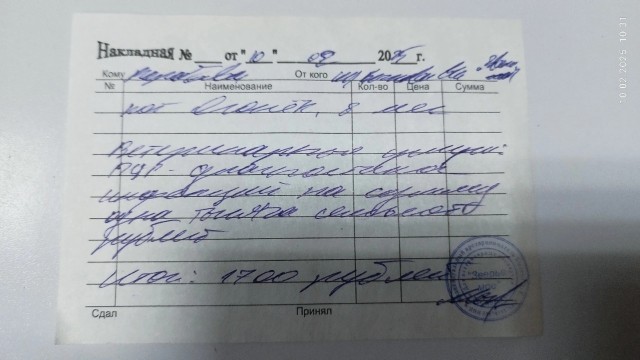 Накладная № от "10" 02 2025 г.
Кому От кого
№ Наименование Кол-во Цена Сумма
кот Огонёк, 8 мес
Ветеринарные услуги:
ПЦР-диагностика
инфекций на сумму
одна тысяча семьсот
рублей
Итог: 1700 рублей
Сдал Принял
10.02.2025 10:31